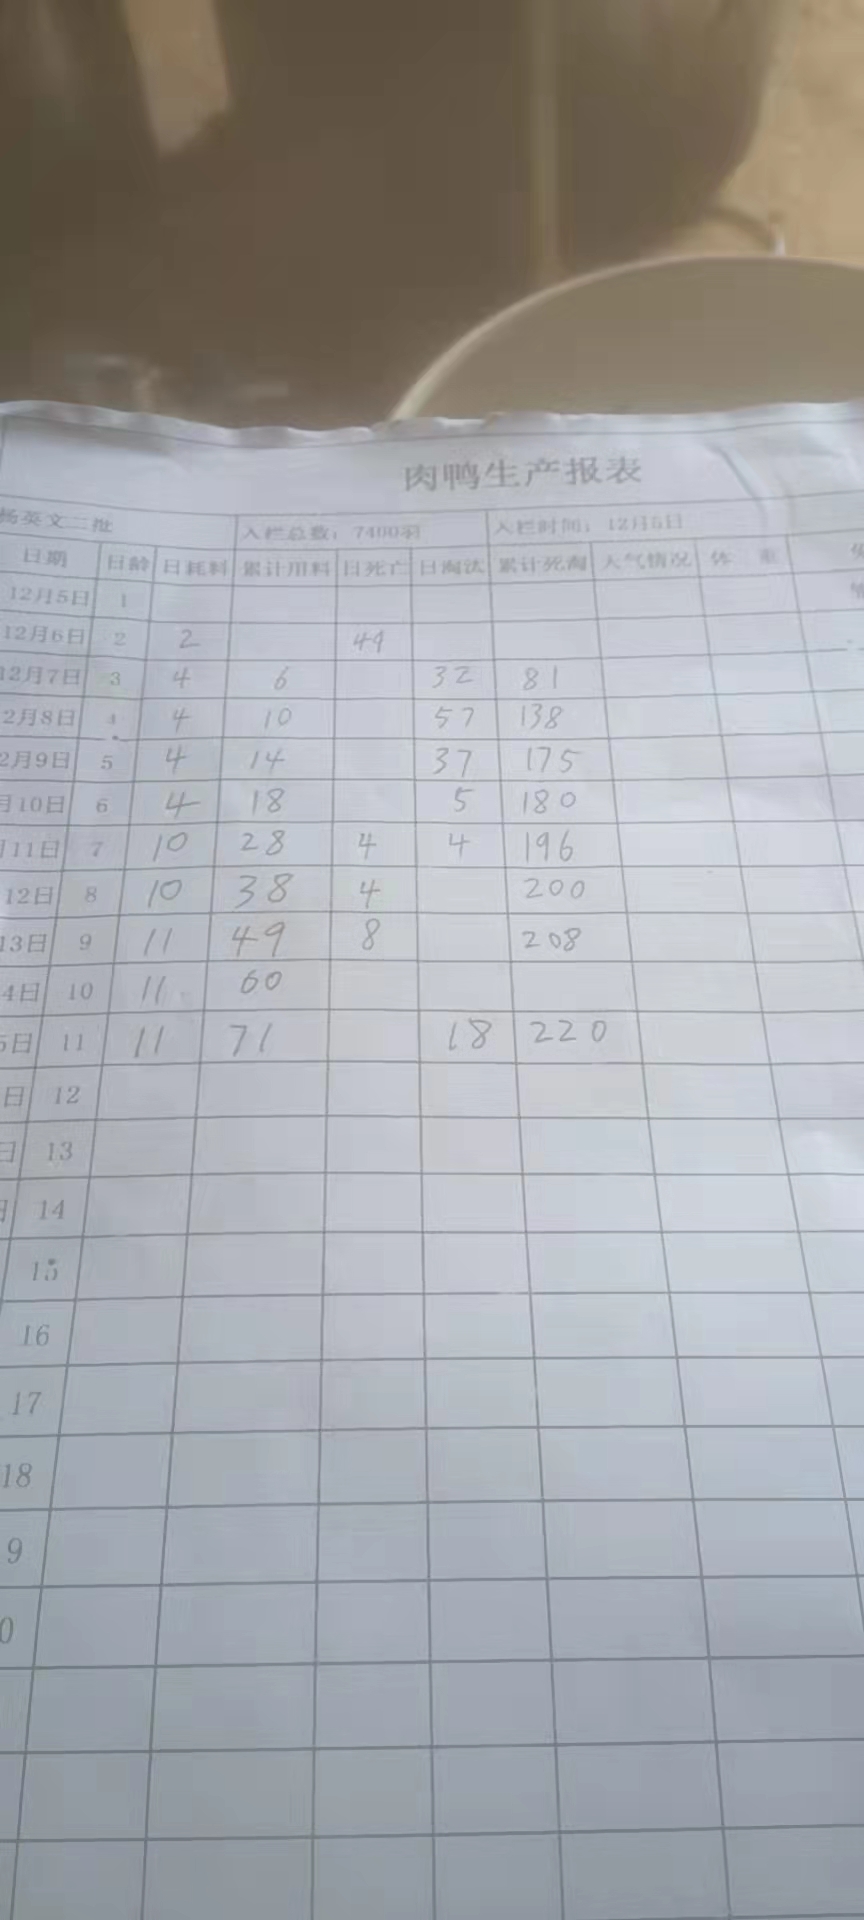 肉鸭生产报表
杨英文二批 入栏总数：7400羽 入栏时间：12月5日
日期 日龄 日耗料 累计用料 日死亡 日淘汰 累计死淘 天气情况 体 重
12月5日 1
12月6日 2 2 49
12月7日 3 4 6 32 81
2月8日 4 4 10 57 138
2月9日 5 4 14 37 175
月10日 6 4 18 5 180
11日 7 10 28 4 4 196
12日 8 10 38 4 200
13日 9 11 49 8 208
4日 10 11 60
5日 11 11 71 18 220
日 12
日 13
日 14
15
16
17
18
9
0